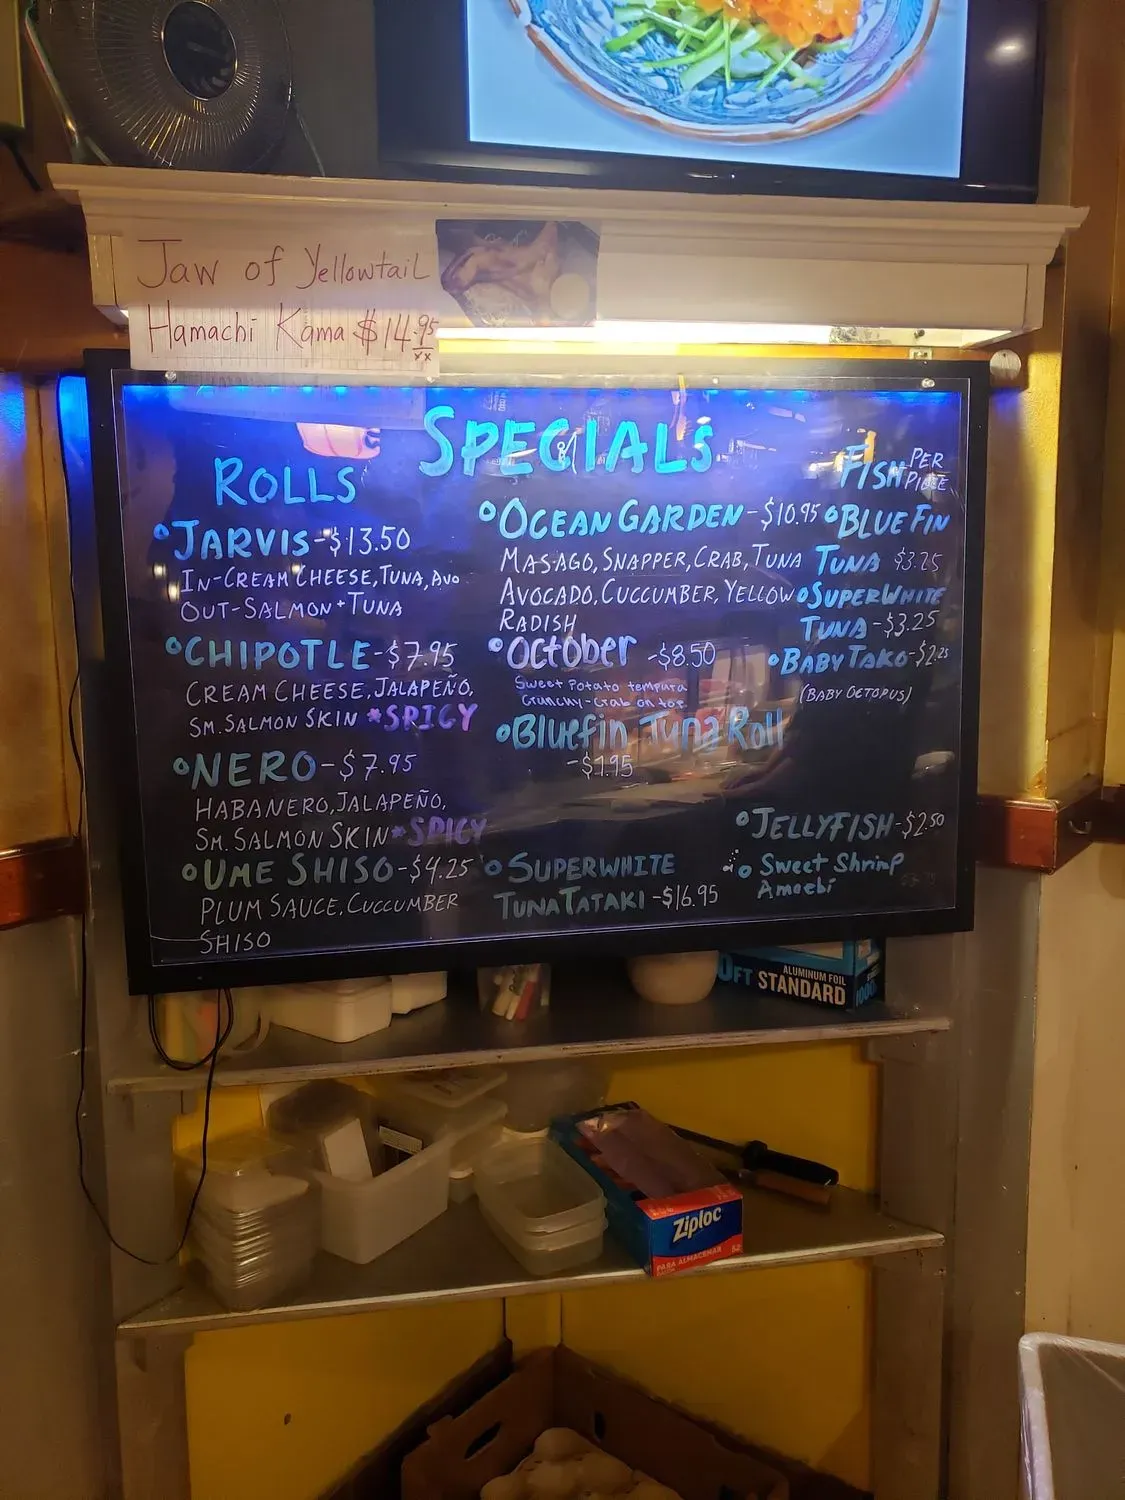 Jaw of Yellowtail
Hamachi Kama $14.95
SPECIALS
ROLLS
JARVIS-$13.50
IN-CREAM CHEESE, TUNA, AVO
OUT-SALMON+TUNA
CHIPOTLE-$7.95
CREAM CHEESE, JALAPEÑO,
SM. SALMON SKIN *SPICY
NERO-$7.95
HABANERO, JALAPEÑO,
SM. SALMON SKIN *SPICY
UME SHISO-$4.25
PLUM SAUCE, CUCCUMBER
SHISO
OCEAN GARDEN-$10.95
MASAGO, SNAPPER, CRAB, TUNA
AVOCADO, CUCCUMBER, YELLOW
RADISH
October -$8.50
Sweet Potato tempura
Crunchy-Crab on top
Bluefin Tuna Roll
SUPERWHITE
TUNA TATAKI-$16.95
FISH PER
PIECE
BLUE FIN
TUNA $3.25
SUPERWHITE
TUNA-$3.25
BABY TAKO-$2.25
(BABY OCTOPUS)
JELLYFISH-$2.50
Sweet Shrimp
Amaebi
FT STANDARD
ALUMINUM FOIL
Ziploc
PARA ALMACENAR
52